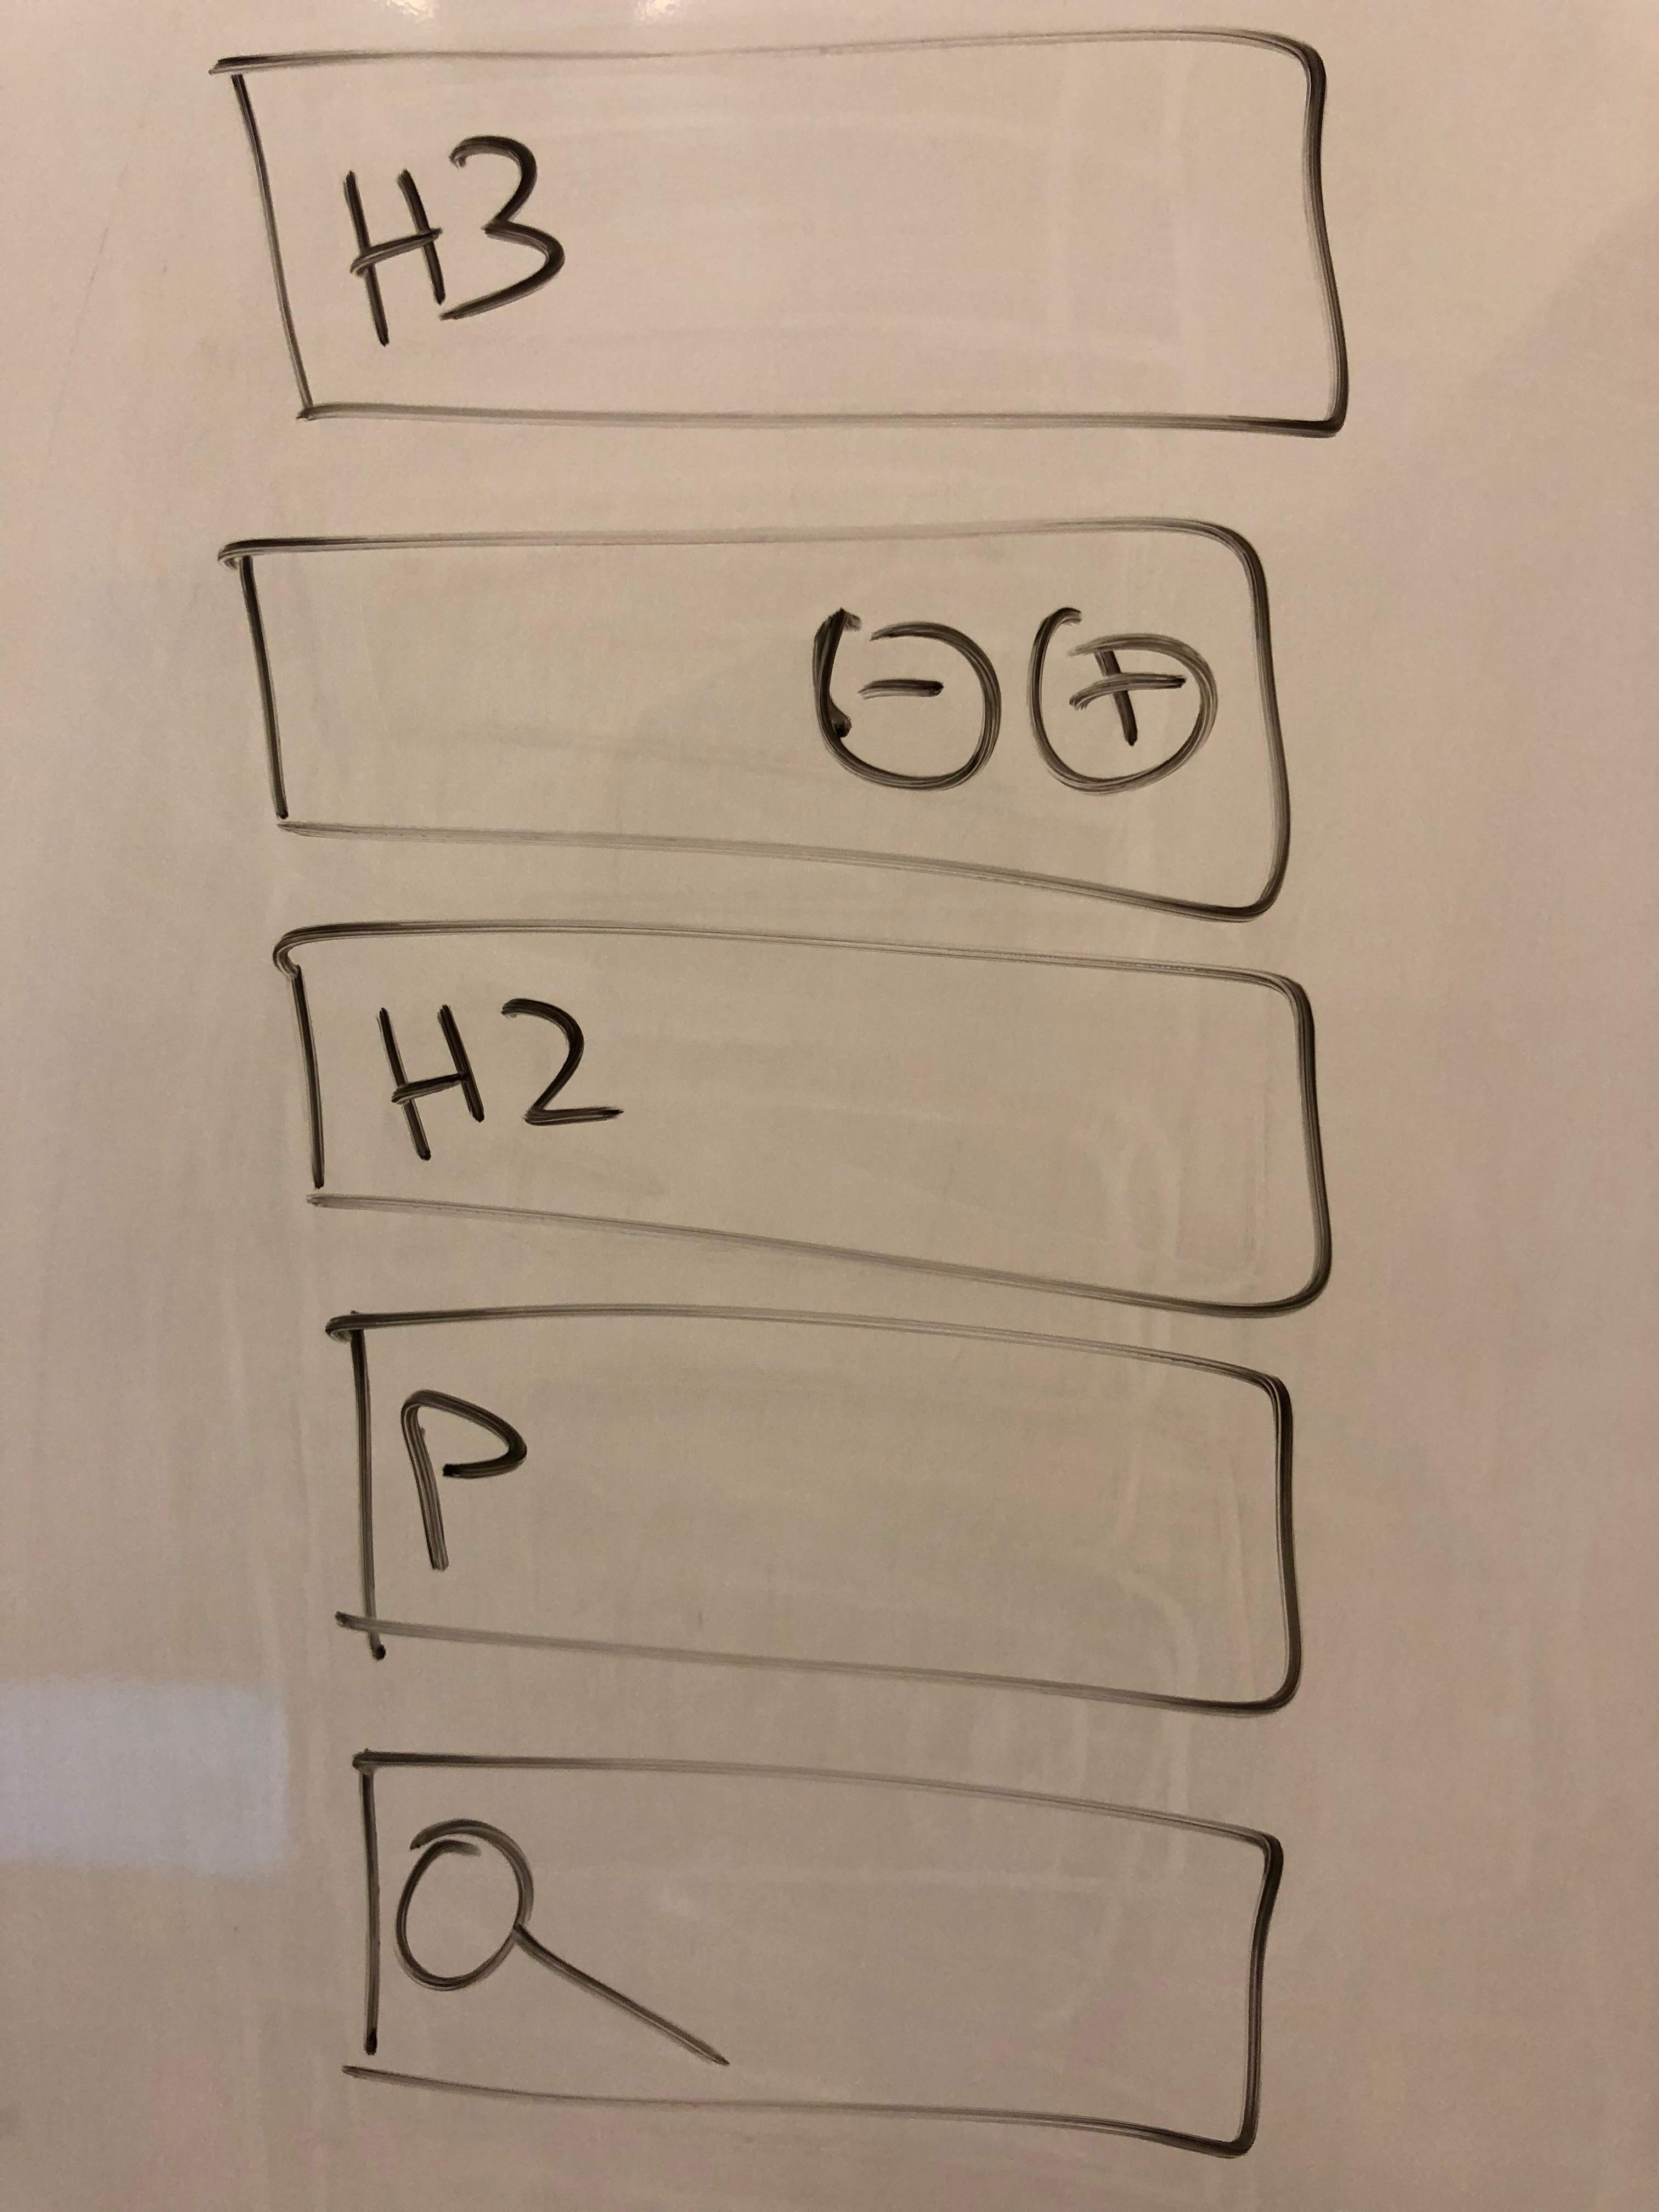 H3
- +
H2
P